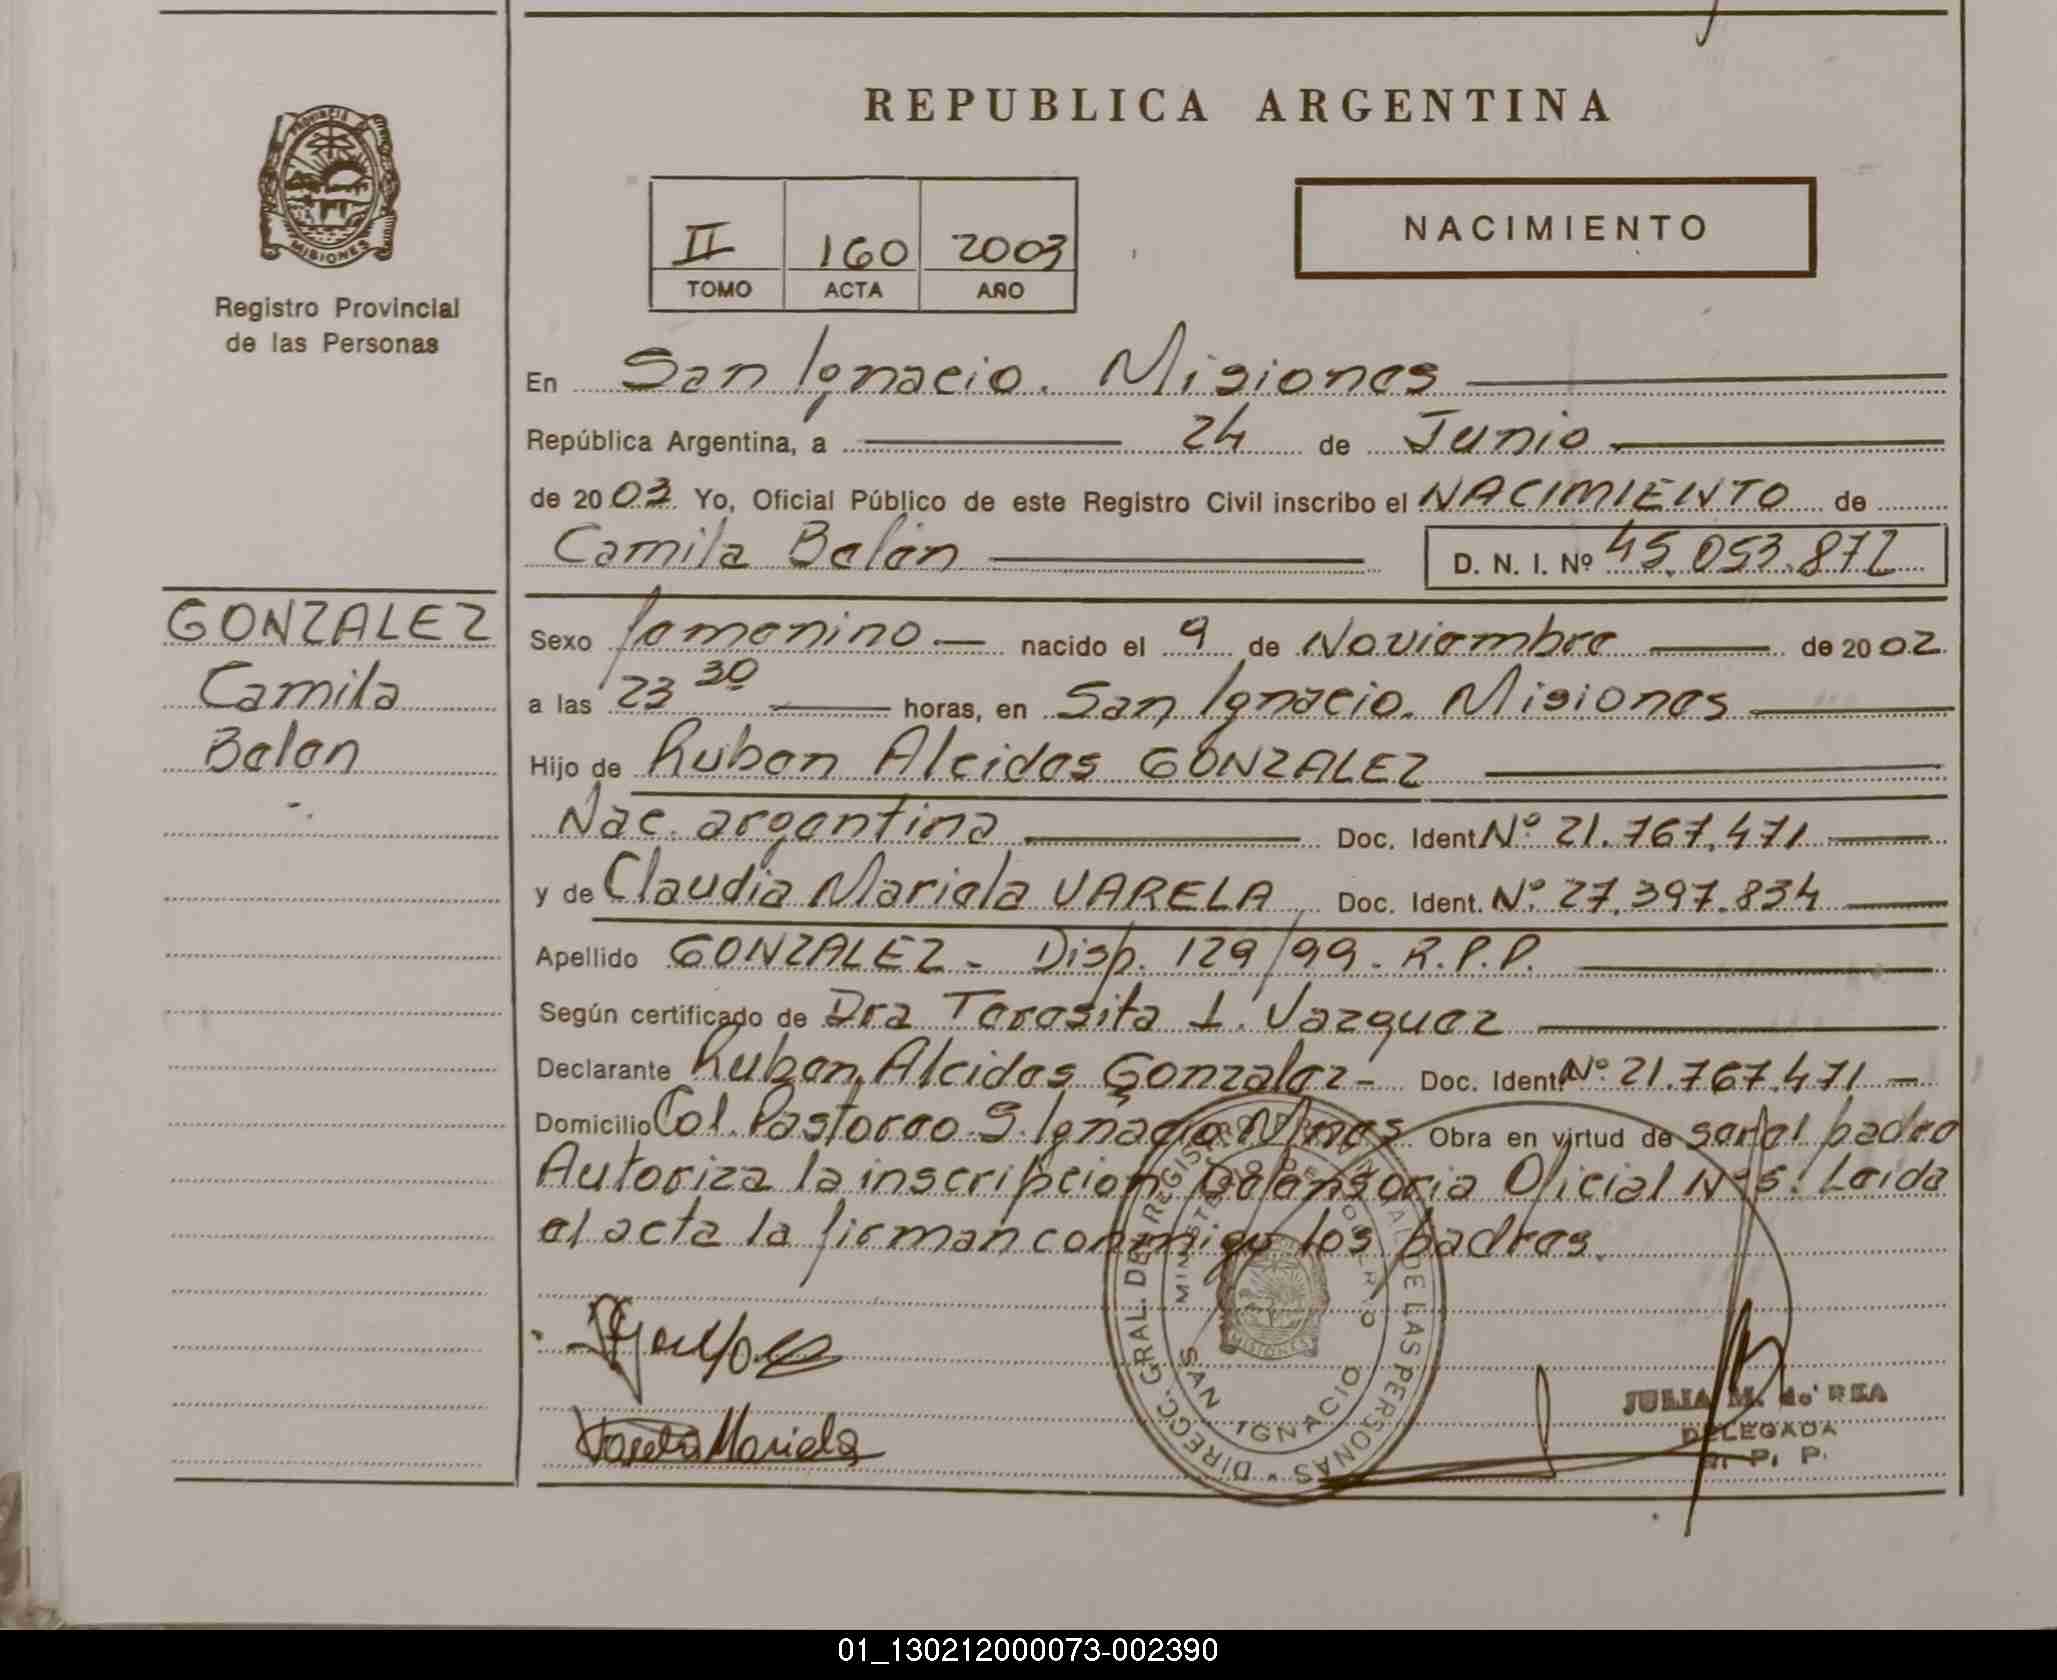 REPUBLICA ARGENTINA
PROVINCIA DE MISIONES
Registro Provincial
de las Personas
II 160 2003
TOMO ACTA AÑO
NACIMIENTO
En San Ignacio. Misiones
República Argentina, a 24 de Junio
de 2003 Yo, Oficial Público de este Registro Civil inscribo el NACIMIENTO de
Camila Belén D. N. I. Nº 45.053.872
GONZALEZ
Camila
Belen
Sexo femenino nacido el 9 de Noviembre de 2002.
a las 23 30 horas, en San Ignacio. Misiones
Hijo de Ruben Alcides GONZALEZ
Nac. argentina Doc. Ident. Nº 21.767.471
y de Claudia Mariela VARELA Doc. Ident. Nº 27.397.834
Apellido GONZALEZ - Disp. 129/99. R.P.P.
Según certificado de Dra Teresita I. Vazquez
Declarante Ruben Alcides Gonzalez - Doc. Ident. Nº 21.767.471 -
Domicilio Col. Pastoreo. S. Ignacio Mnes Obra en virtud de ser el padre
Autoriza la inscripcion Defensoria Oficial Nº 5. Leida
el acta la firman conmigo los padres.
Varela Mariela
DIRECC. GRAL. DEL REGISTRO PROVINCIAL DE LAS PERSONAS
MINISTERIO DE GOBIERNO
MISIONES
SAN IGNACIO
JULIA M. de REA
DELEGADA
R. P. P.
01_130212000073-002390